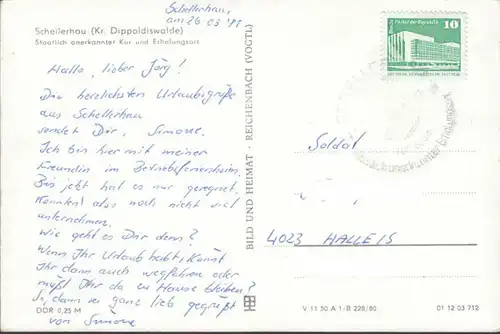 Schellerhau,
am 26 03 '81
Schellerhau (Kr. Dippoldiswalde)
Staatlich anerkannter Kur und Erholungsort
Hallo, lieber Jörg!
Die herzlichsten Urlaubsgrüße
aus Schellerhau
sendet Dir, Simone.
Ich bin hier mit meiner
Freundin im Betriebsferienheim.
Bis jetzt hat es nur geregnet.
Konnten also noch nicht viel
unternehmen.
Wie geht es Dir denn?
Wenn Ihr Urlaub habt, könnt
Ihr dann auch wegfahren oder
müßt Ihr da zu Hause bleiben?
So, dann sei ganz lieb gegrüßt
von Simone
DDR 0,25 M
BILD UND HEIMAT · REICHENBACH (VOGTL)
Palast der Republik
10
Soldat
4023 HALLE 15
V 11 50 A 1/B 228/80
01 12 03 712